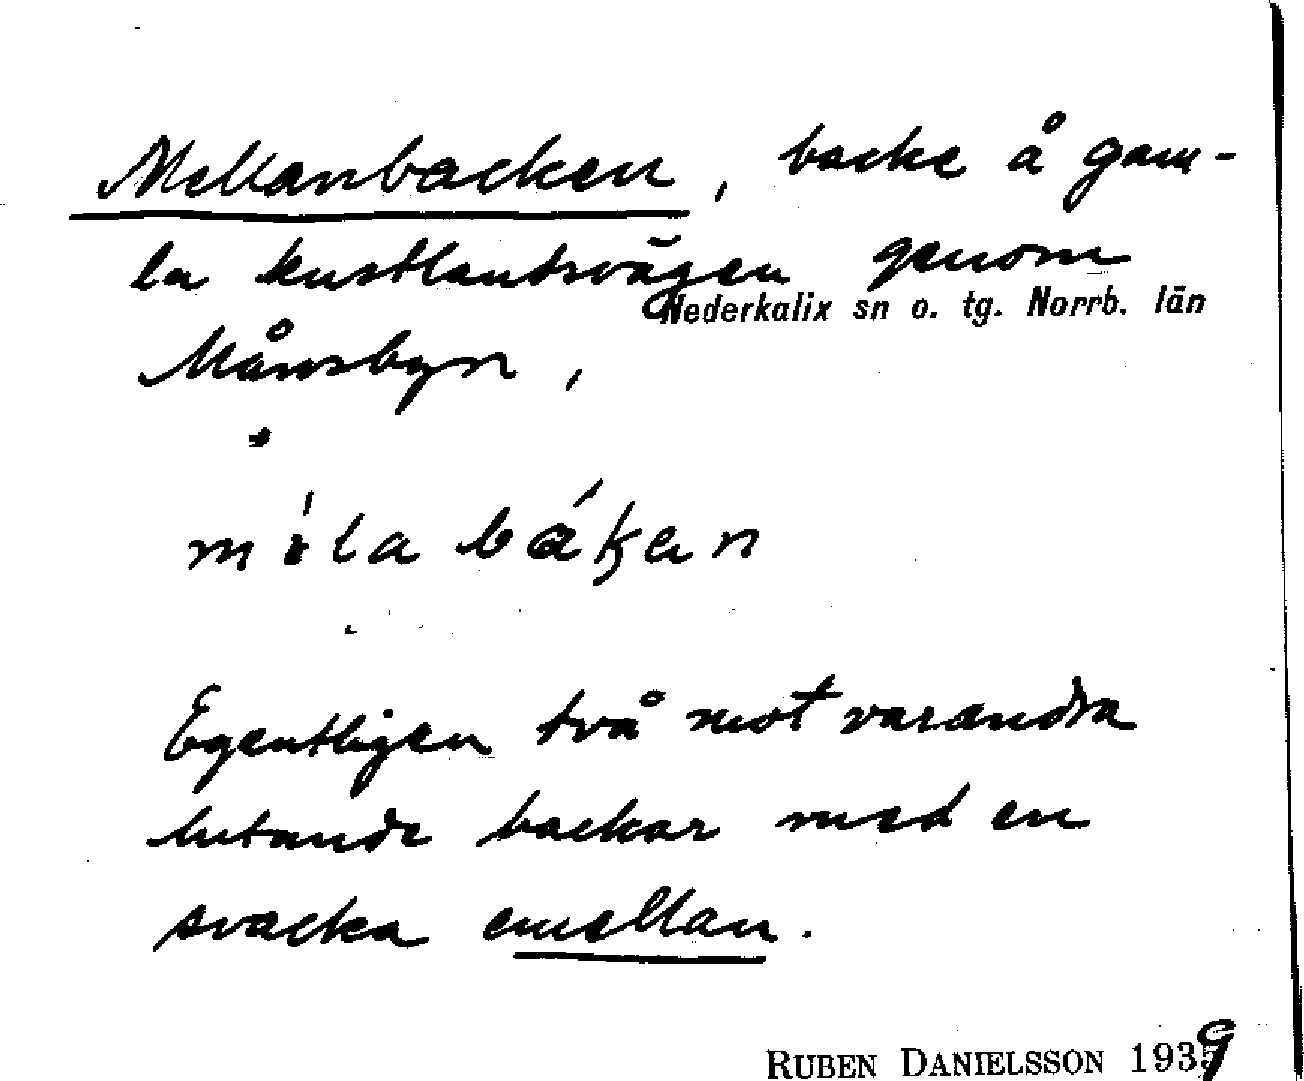 Mellanbacken, backe å gam-
la kustlantsvägen genom
Nederkalix sn o. tg. Norrb. län
Månsbyn,
båkan
Egentligen två mot varandra
lutande backar med en
svacka emellan.
RUBEN DANIELSSON 1939